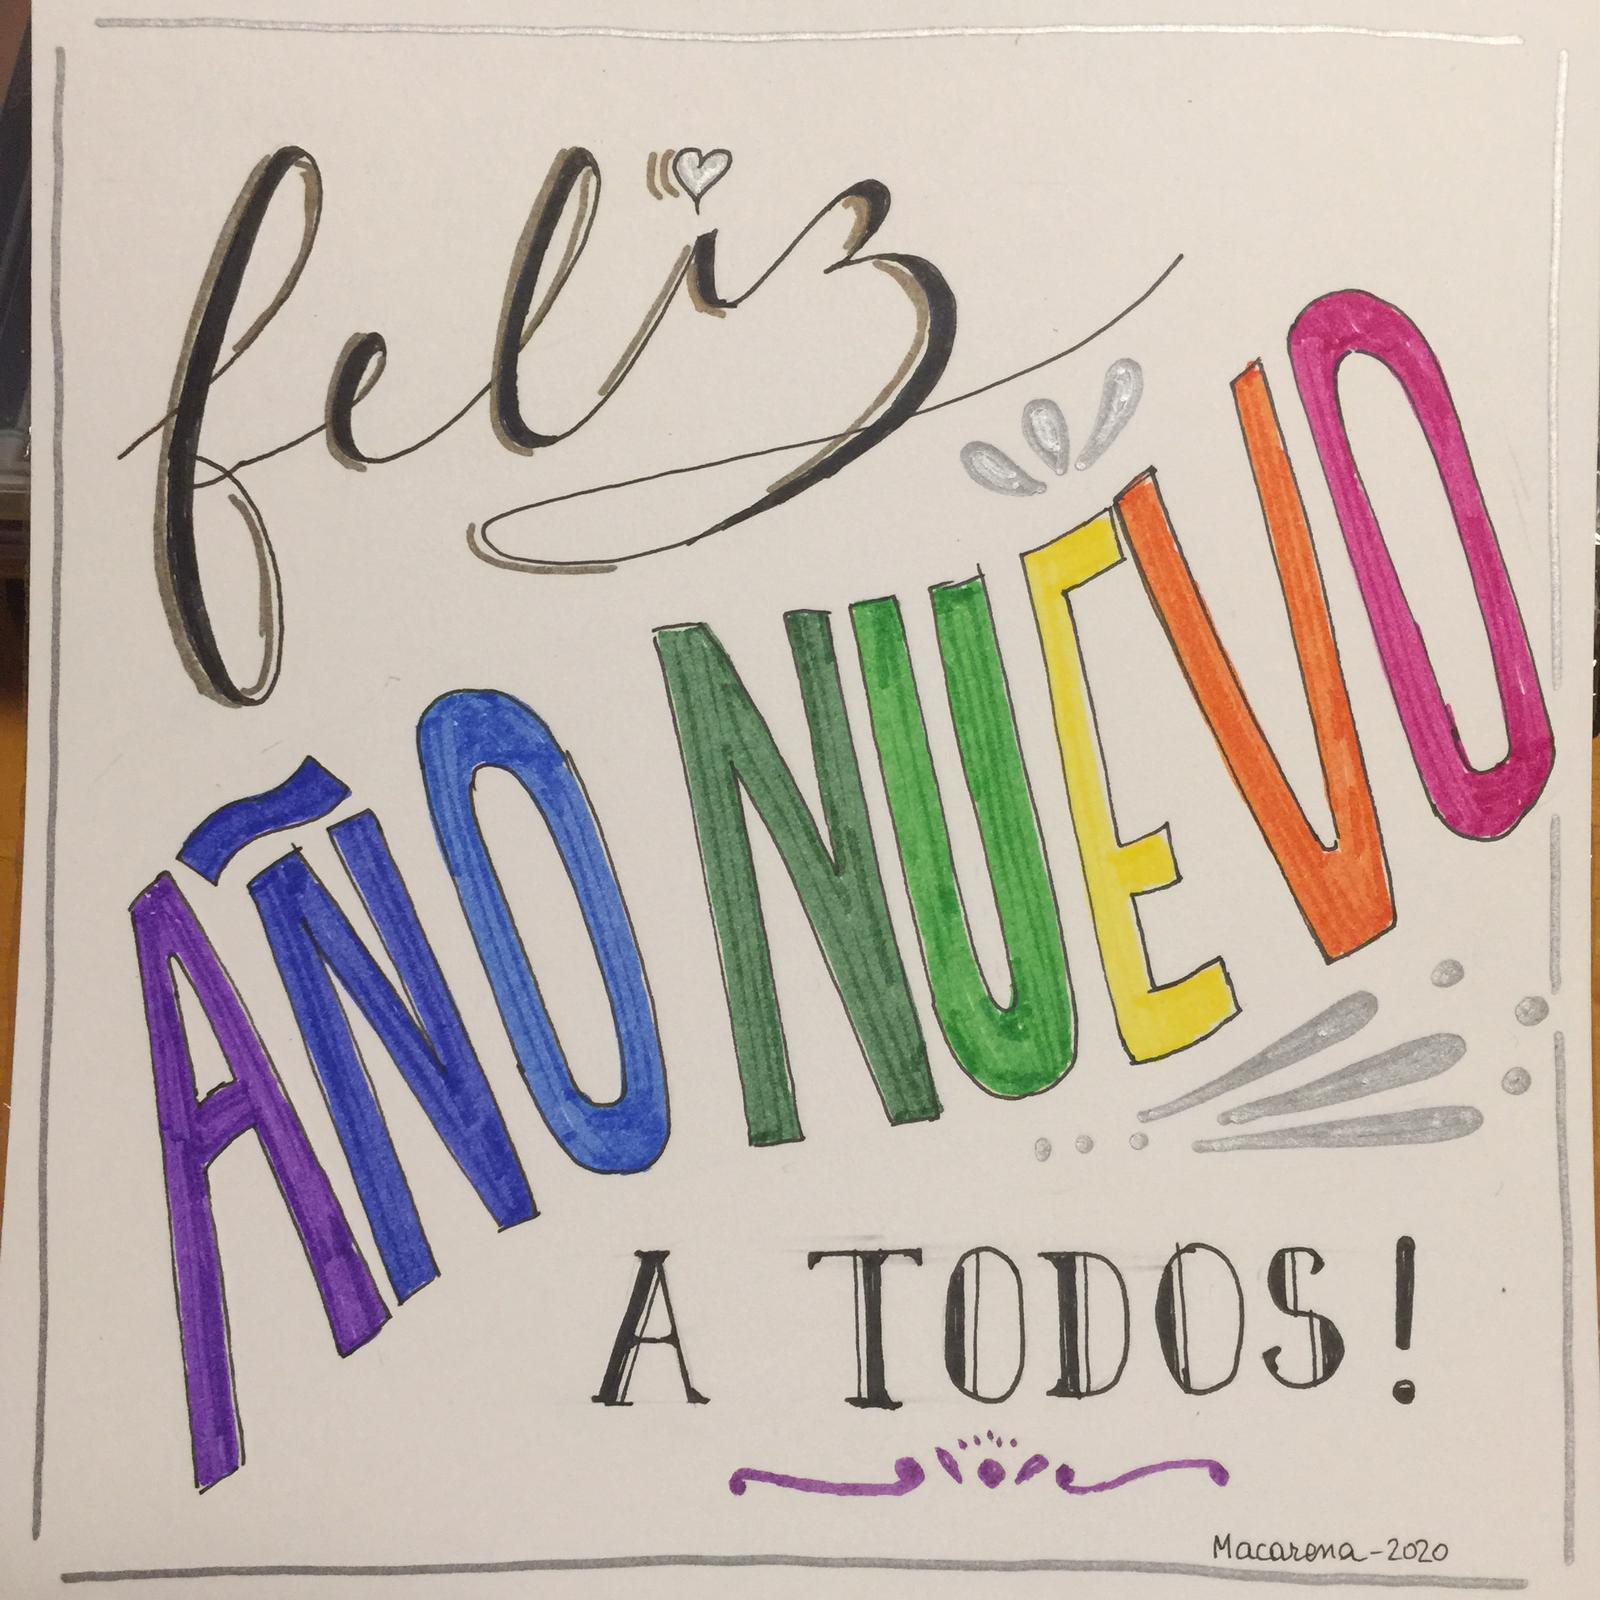 feliz
AÑO NUEVO
A TODOS!
Macarena-2020